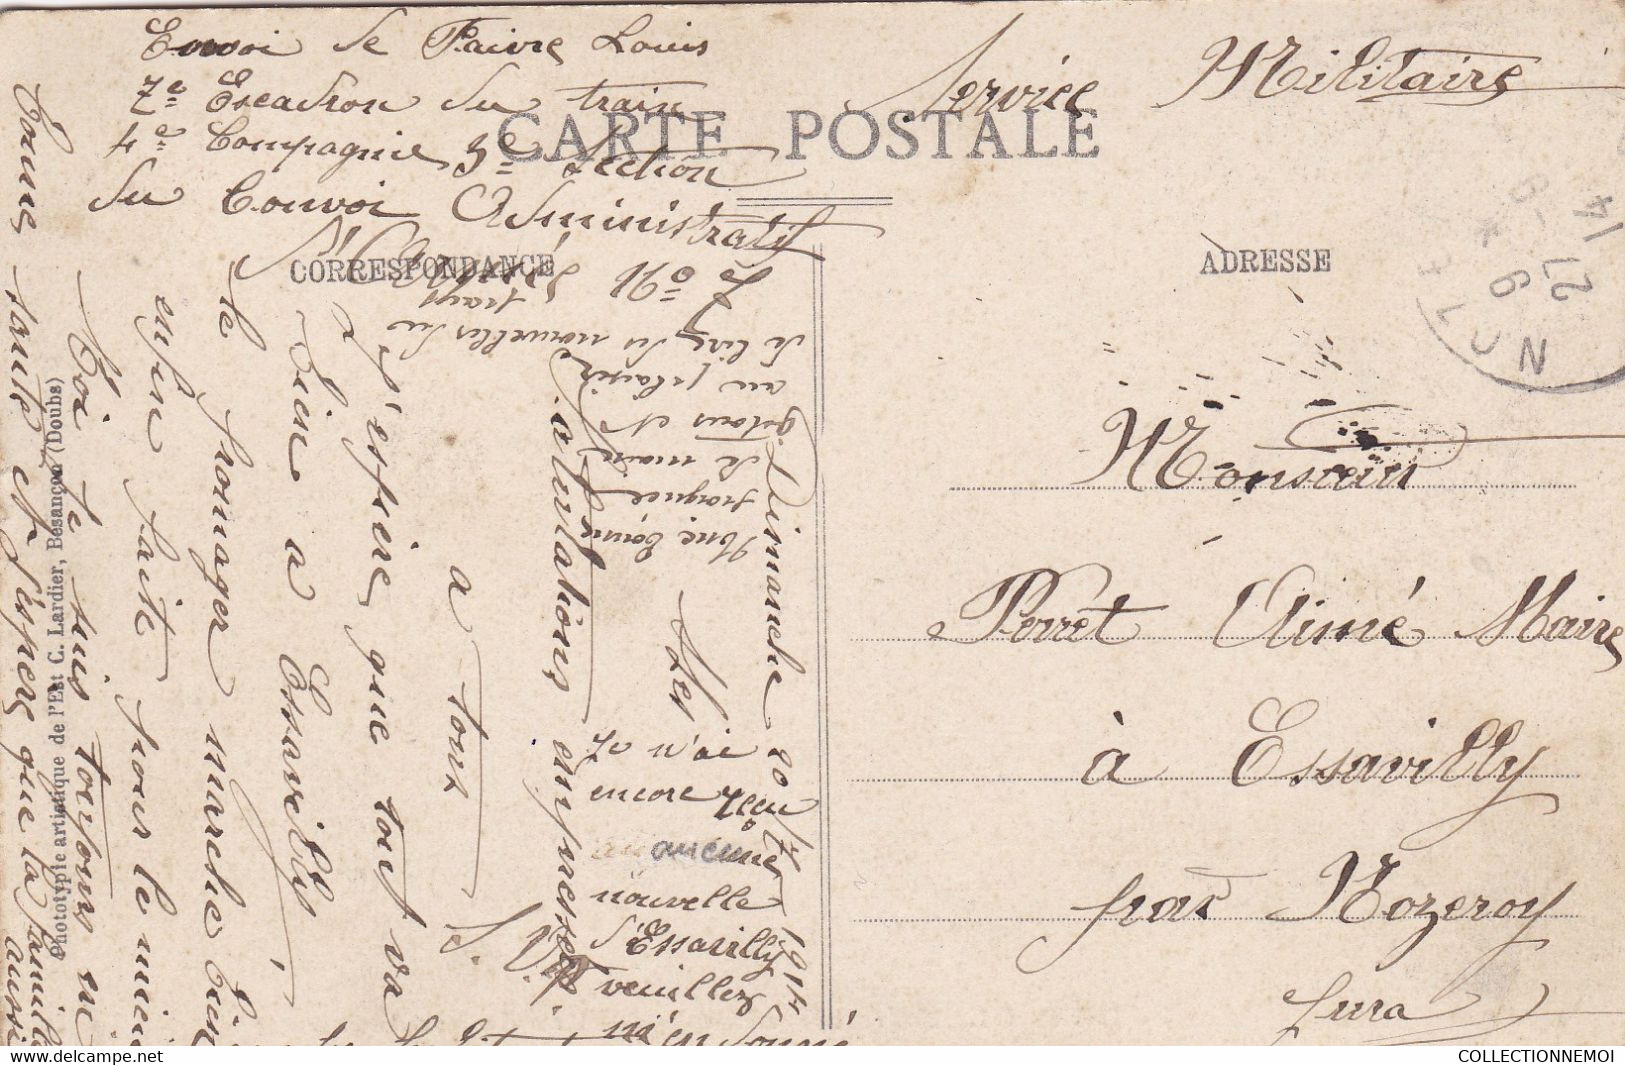 Envoi de Faivre Louis
7e Escadron du train
4e Compagnie 3e Section
du Convoi Administratif
Service Militaire
CARTE POSTALE
CORRESPONDANCE
ADRESSE
Monsieur
Perret Aimé Maire
à Essavilly
par Nozeroy
Jura
Dimanche 20 1914
Les
salutations empressées
a tous
j'espère que tout va
bien a Essavilly
le fromager marche bien
enfin faite pour le mieu
Moi je suis toujours en
bonne santé et j'espère que la famille
aussi
Une bonne
poignée
de main
a tous et
au plaisir
de lire des nouvelles du
pays
Je n'ai
encore reçu
aucune
nouvelle
d'Essavilly
veuillez
m'en donné
Phototypie artistique de l'Est C. Lardier, Besançon (Doubs)
21
14
COLLECTIONNEMOI